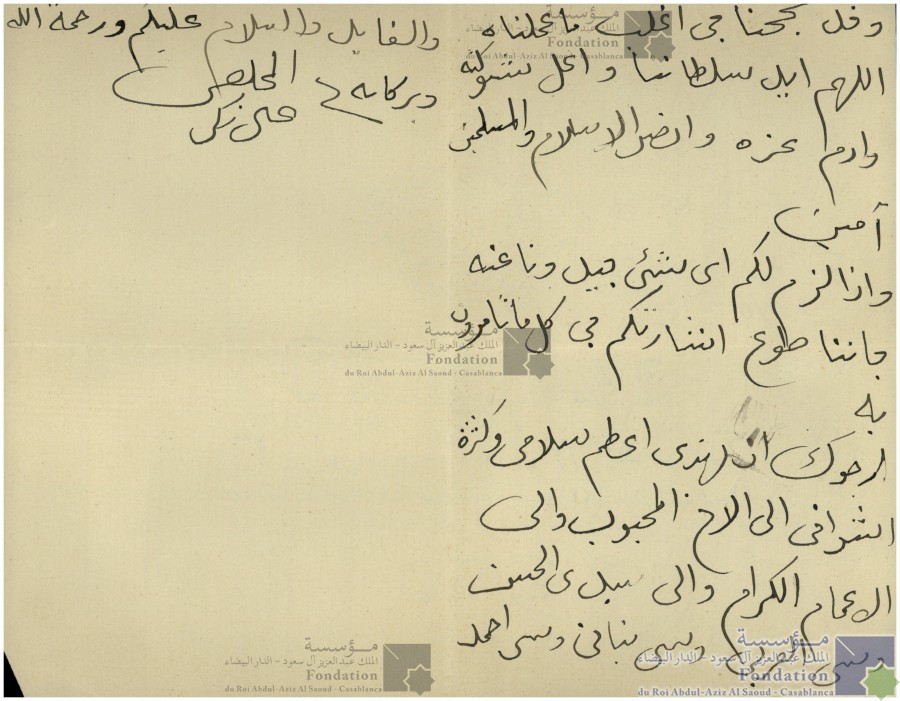 وقد نجحنا في اغلب ما عملناه
اللهم ايد سلطاننا واعل شوكته
وادم عزه وانصر الاسلام والمسلمين
آمين
واذا لزم لكم اى شئ
فاننا طوع اشارتكم في كل ما تامرون
به
ارجوك ان تهدى اعظم سلامى وكثرة
اشواقى الى الاخ المحبوب والى
الاعمام الكرام والى سيدى الحسن
وسى بنانى وسى احمد
والسلام عليكم ورحمة الله
وبركاته المخلص
على زكى
مؤسسة
الملك عبدالعزيز آل سعود - الدار البيضاء
Fondation
du Roi Abdul-Aziz Al Saoud - Casablanca
مؤسسة
الملك عبدالعزيز آل سعود - الدار البيضاء
Fondation
du Roi Abdul-Aziz Al Saoud - Casablanca
مؤسسة
الملك عبدالعزيز آل سعود - الدار البيضاء
Fondation
du Roi Abdul-Aziz Al Saoud - Casablanca
مؤسسة
الملك عبدالعزيز آل سعود - الدار البيضاء
Fondation
du Roi Abdul-Aziz Al Saoud - Casablanca